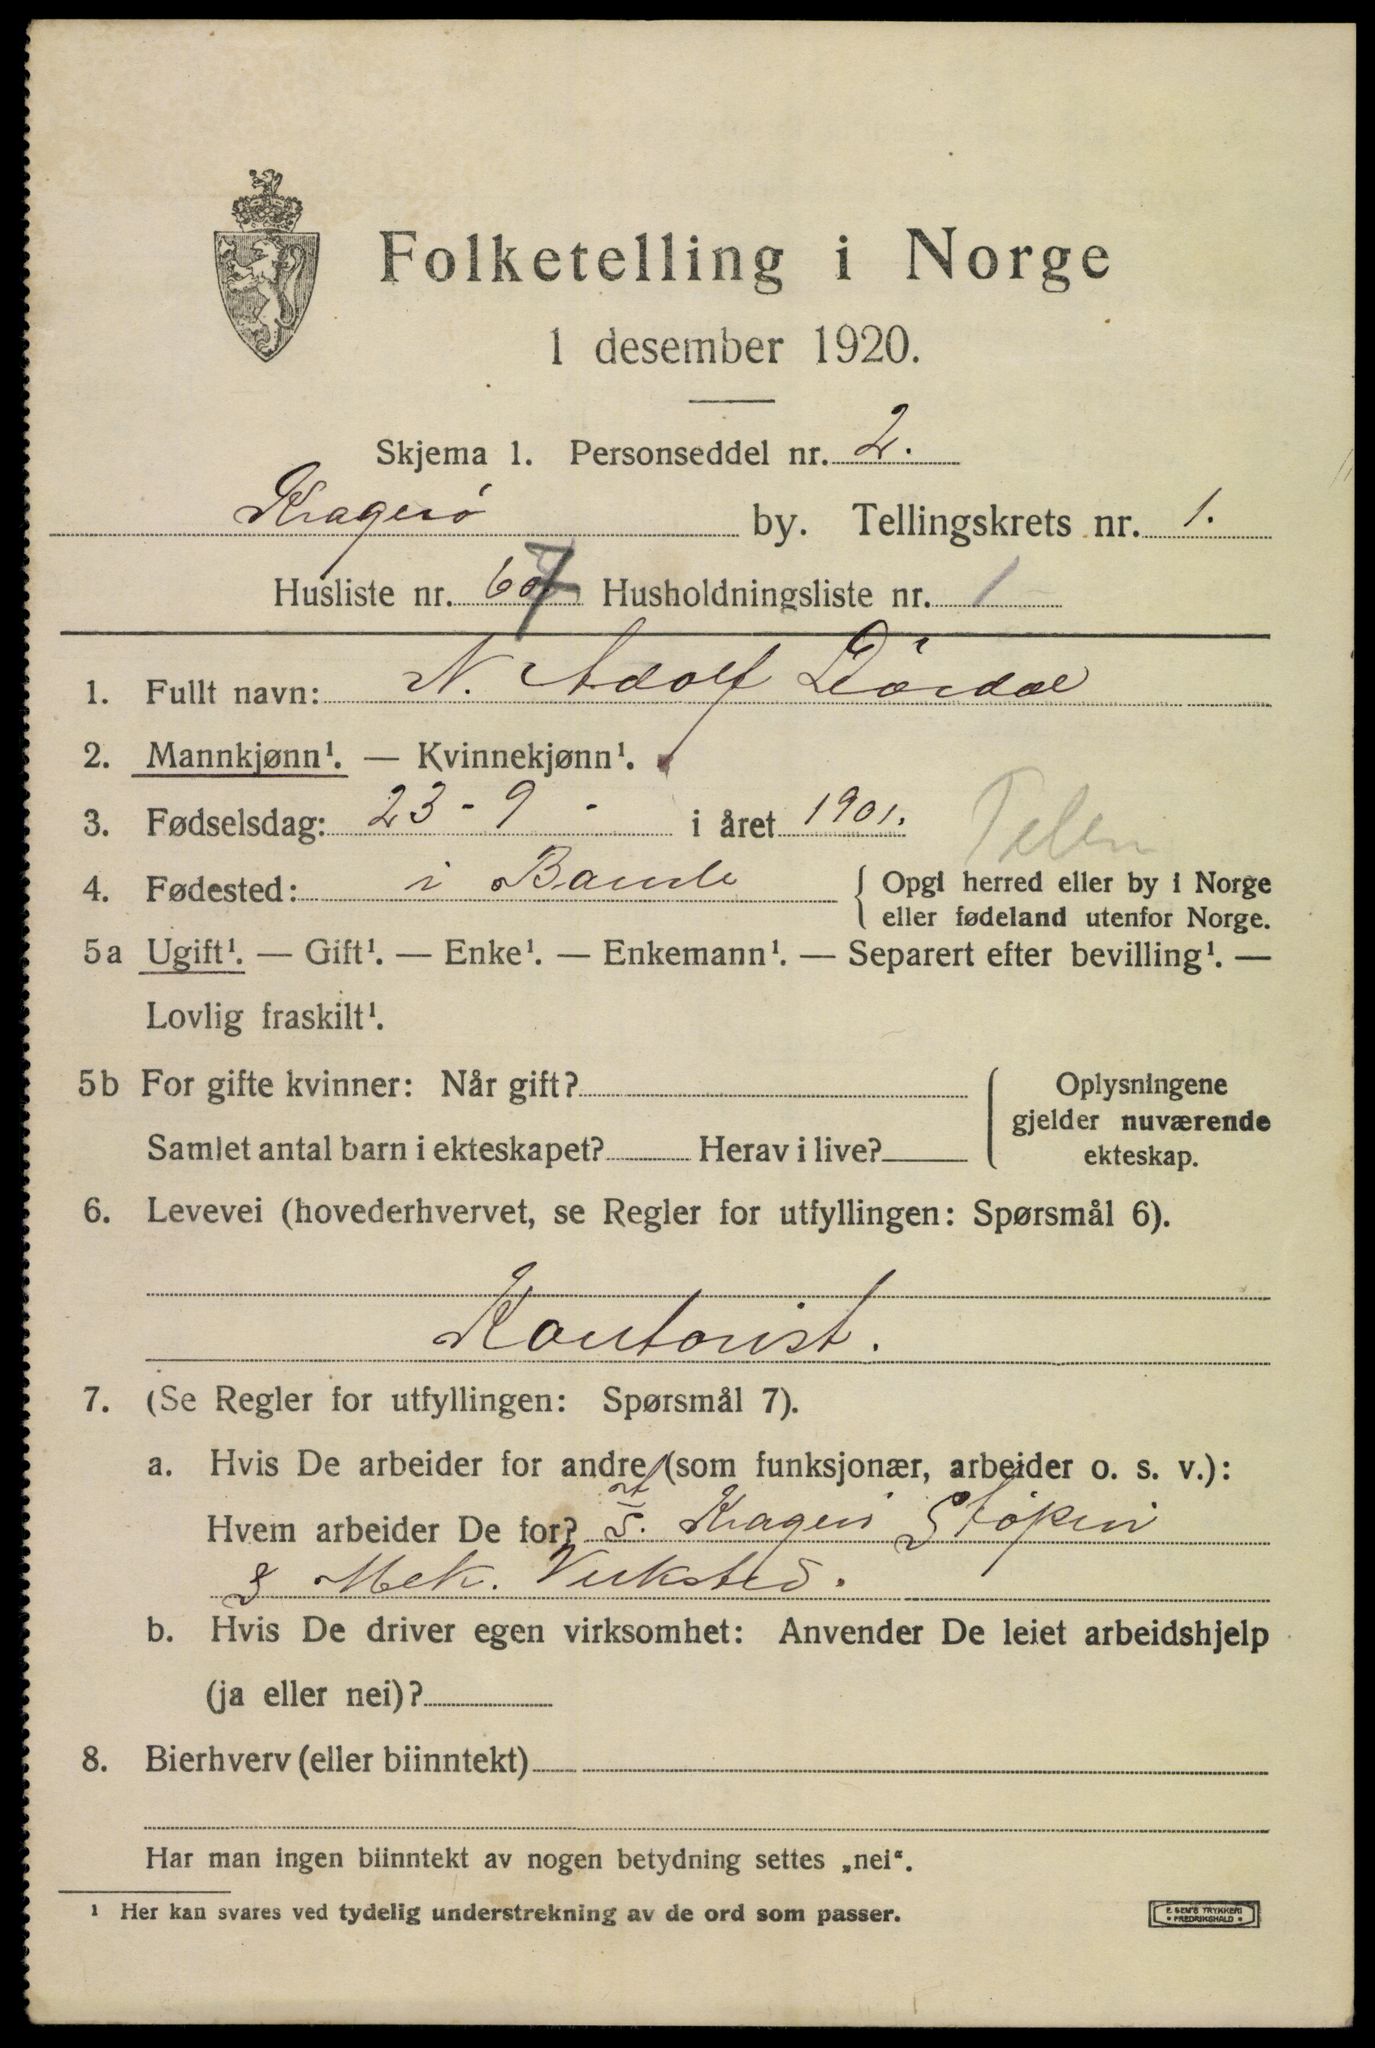 Folketelling i Norge
1 desember 1920.
Skjema 1. Personseddel nr. 2.
Kragerø by. Tellingskrets nr. 1.
Husliste nr. 67 Husholdningsliste nr. 1
1. Fullt navn: N. Adolf Dördal
2. Mannkjønn¹. — Kvinnekjønn¹.
3. Fødselsdag: 23 - 9 - i året 1901.
4. Fødested: i Bamle { Opgi herred eller by i Norge
eller fødeland utenfor Norge.
5a Ugift¹. — Gift¹. — Enke¹. — Enkemann¹. — Separert efter bevilling¹. —
Lovlig fraskilt¹.
5b For gifte kvinner: Når gift? { Oplysningene
gjelder nuværende
Samlet antal barn i ekteskapet? Herav i live? ekteskap.
6. Levevei (hovederhvervet, se Regler for utfyllingen: Spørsmål 6).
Kontorist.
7. (Se Regler for utfyllingen: Spørsmål 7).
a. Hvis De arbeider for andre (som funksjonær, arbeider o. s. v.):
Hvem arbeider De for? Kragerö Stöperi
& Mek. Verksted.
b. Hvis De driver egen virksomhet: Anvender De leiet arbeidshjelp
(ja eller nei)?
8. Bierhverv (eller biinntekt)
Har man ingen biinntekt av nogen betydning settes „nei“.
¹ Her kan svares ved tydelig understrekning av de ord som passer.
E. SEM'S TRYKKERI
FREDRIKSHALD